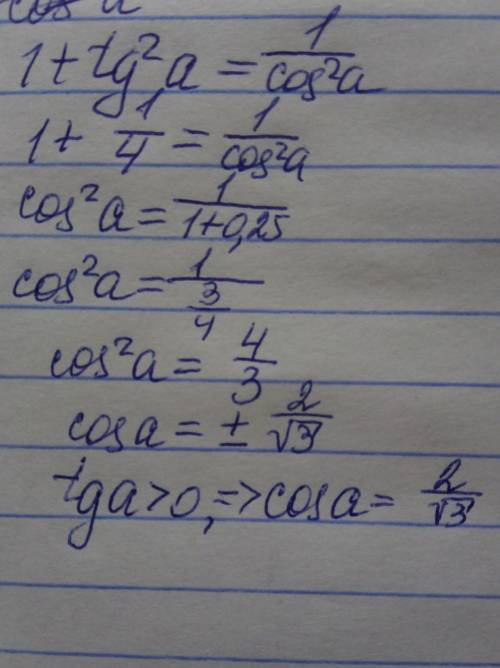 cos a
1 + tg²a = 1/cos²a
1 + 1/4 = 1/cos²a
cos²a = 1/(1+0,25)
cos²a = 1/(3/4)
cos²a = 4/3
cos a = ± 2/√3
tga>0, => cosa = 2/√3